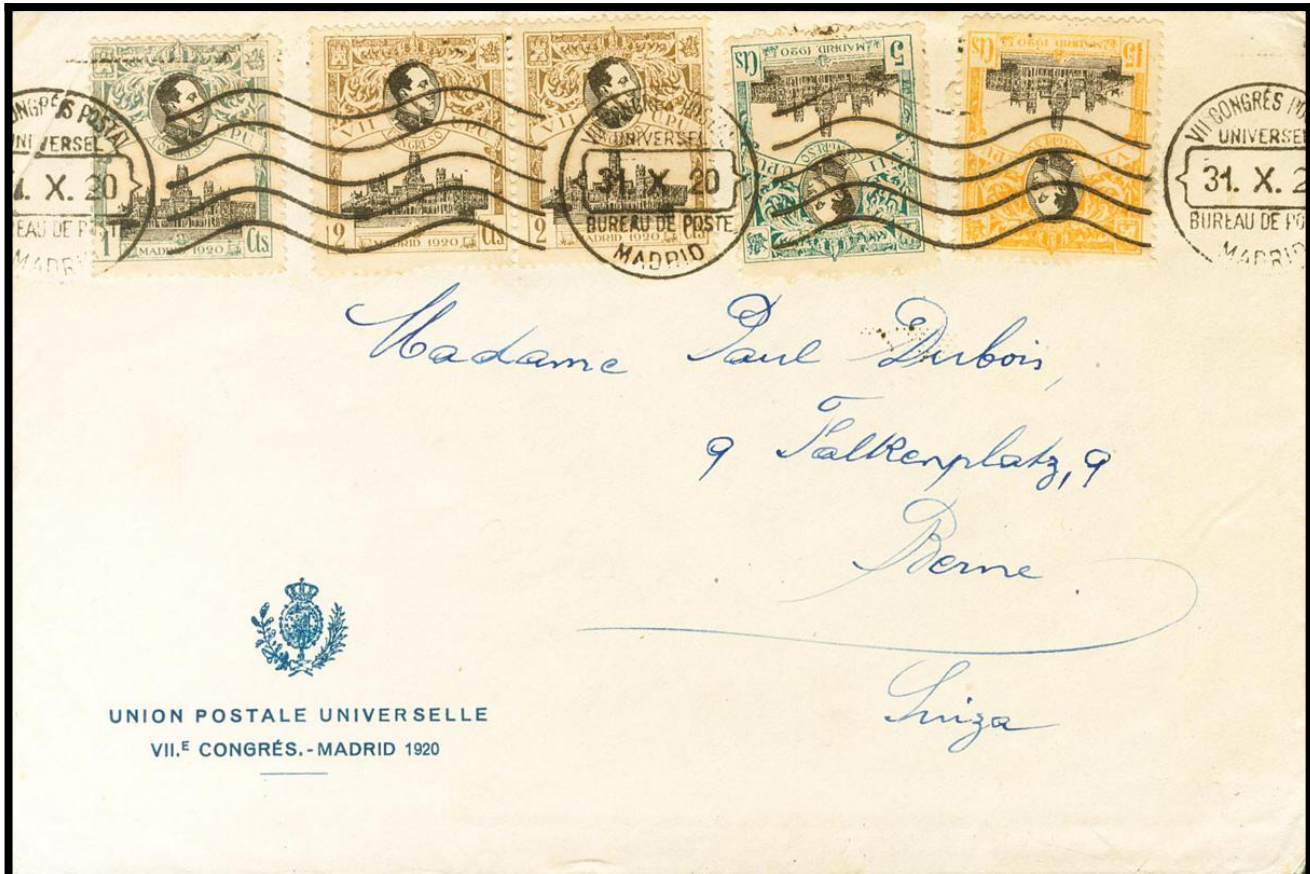 CONGRÉS POSTAL
UNIVERSEL
1. X. 20
BUREAU DE POSTE
MADRID
VII CONGRESO UPU
1 MADRID 1920 Cts
VII CONGRESO UPU
2 MADRID 1920 Cts
VII CONGRESO UPU
2 MADRID 1920
VII CONGRÉS
UNIVERSEL
31. X. 20
BUREAU DE POSTE
MADRID
5 Cts MADRID 1920 5 Cts
VII CONGRESO UPU
15 Cts MADRID 1920 15
VII CONGRESO UPU
VII CONGRÉS
UNIVERSEL
31. X. 2
BUREAU DE PO
MADRID
Madame Paul Dubois,
9 Falkenplatz, 9
Berne
Suiza
UNION POSTALE UNIVERSELLE
VII.E CONGRÉS.-MADRID 1920